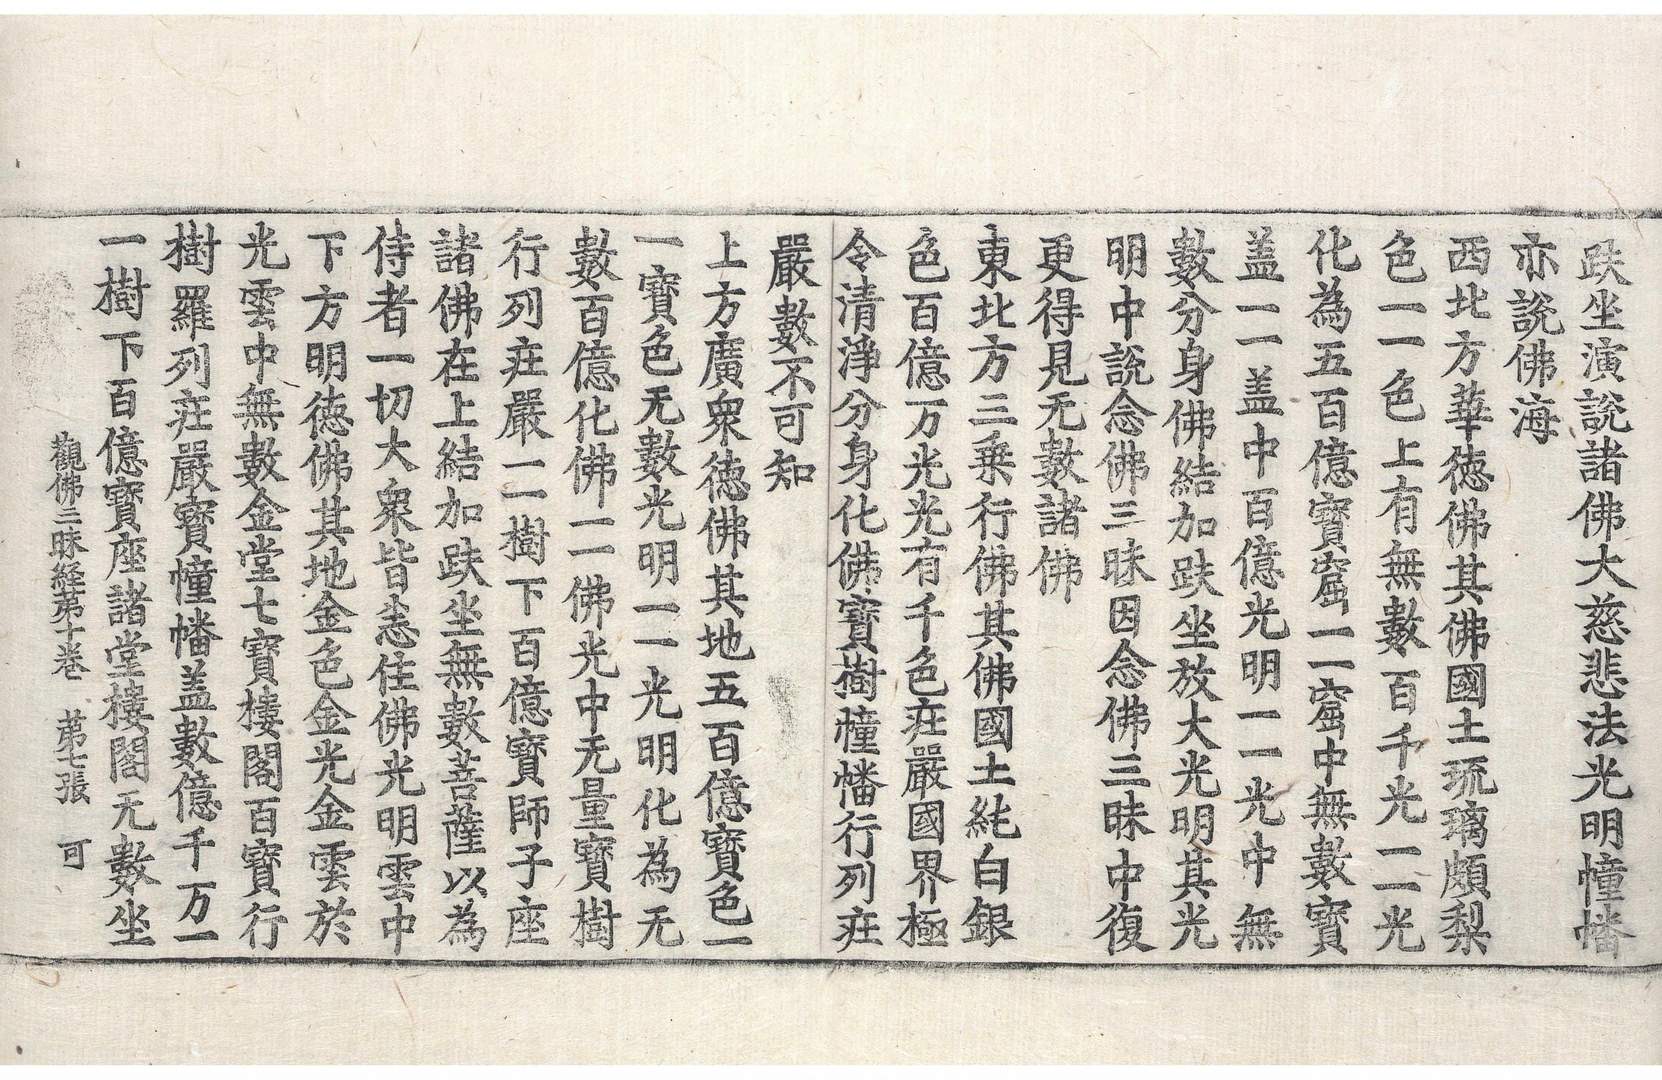 趺坐演說諸佛大慈悲法光明幢幡
亦說佛海
西北方華德佛其佛國土琉璃頗梨
色一一色上有無數百千光一一光
化為五百億寶窟一一窟中無數寶
盖一一盖中百億光明一一光中無
數分身佛結加趺坐放大光明其光
明中說念佛三昧因念佛三昧中復
更得見无數諸佛
東北方三乗行佛其佛國土純白銀
色百億万光光有千色㽵嚴國界極
令清淨分身化佛寶樹幢幡行列㽵
嚴數不可知
上方廣衆德佛其地五百億寶色一
一寶色无數光明一一光明化為无
數百億化佛一一佛光中无量寶樹
行列㽵嚴一一樹下百億寶師子座
諸佛在上結加趺坐無數菩薩以為
侍者一切大衆皆悉住佛光明雲中
下方明德佛其地金色金光金雲於
光雲中無數金堂七寶樓閣百寶行
樹羅列㽵嚴寶幢幡盖數億千万一
一樹下百億寶座諸堂樓閣无數坐
觀佛三昧経苐十卷 苐七張 可